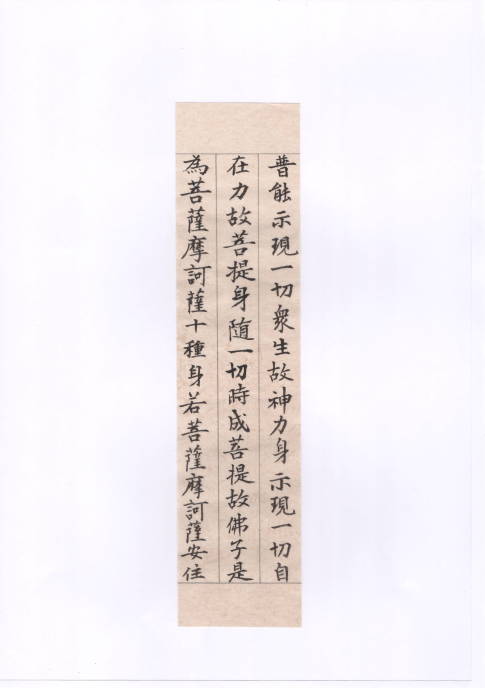 普能示現一切衆生故神力身示現一切自
在力故菩提身随一切時成菩提故佛子是
為菩薩摩訶薩十種身若菩薩摩訶薩安住